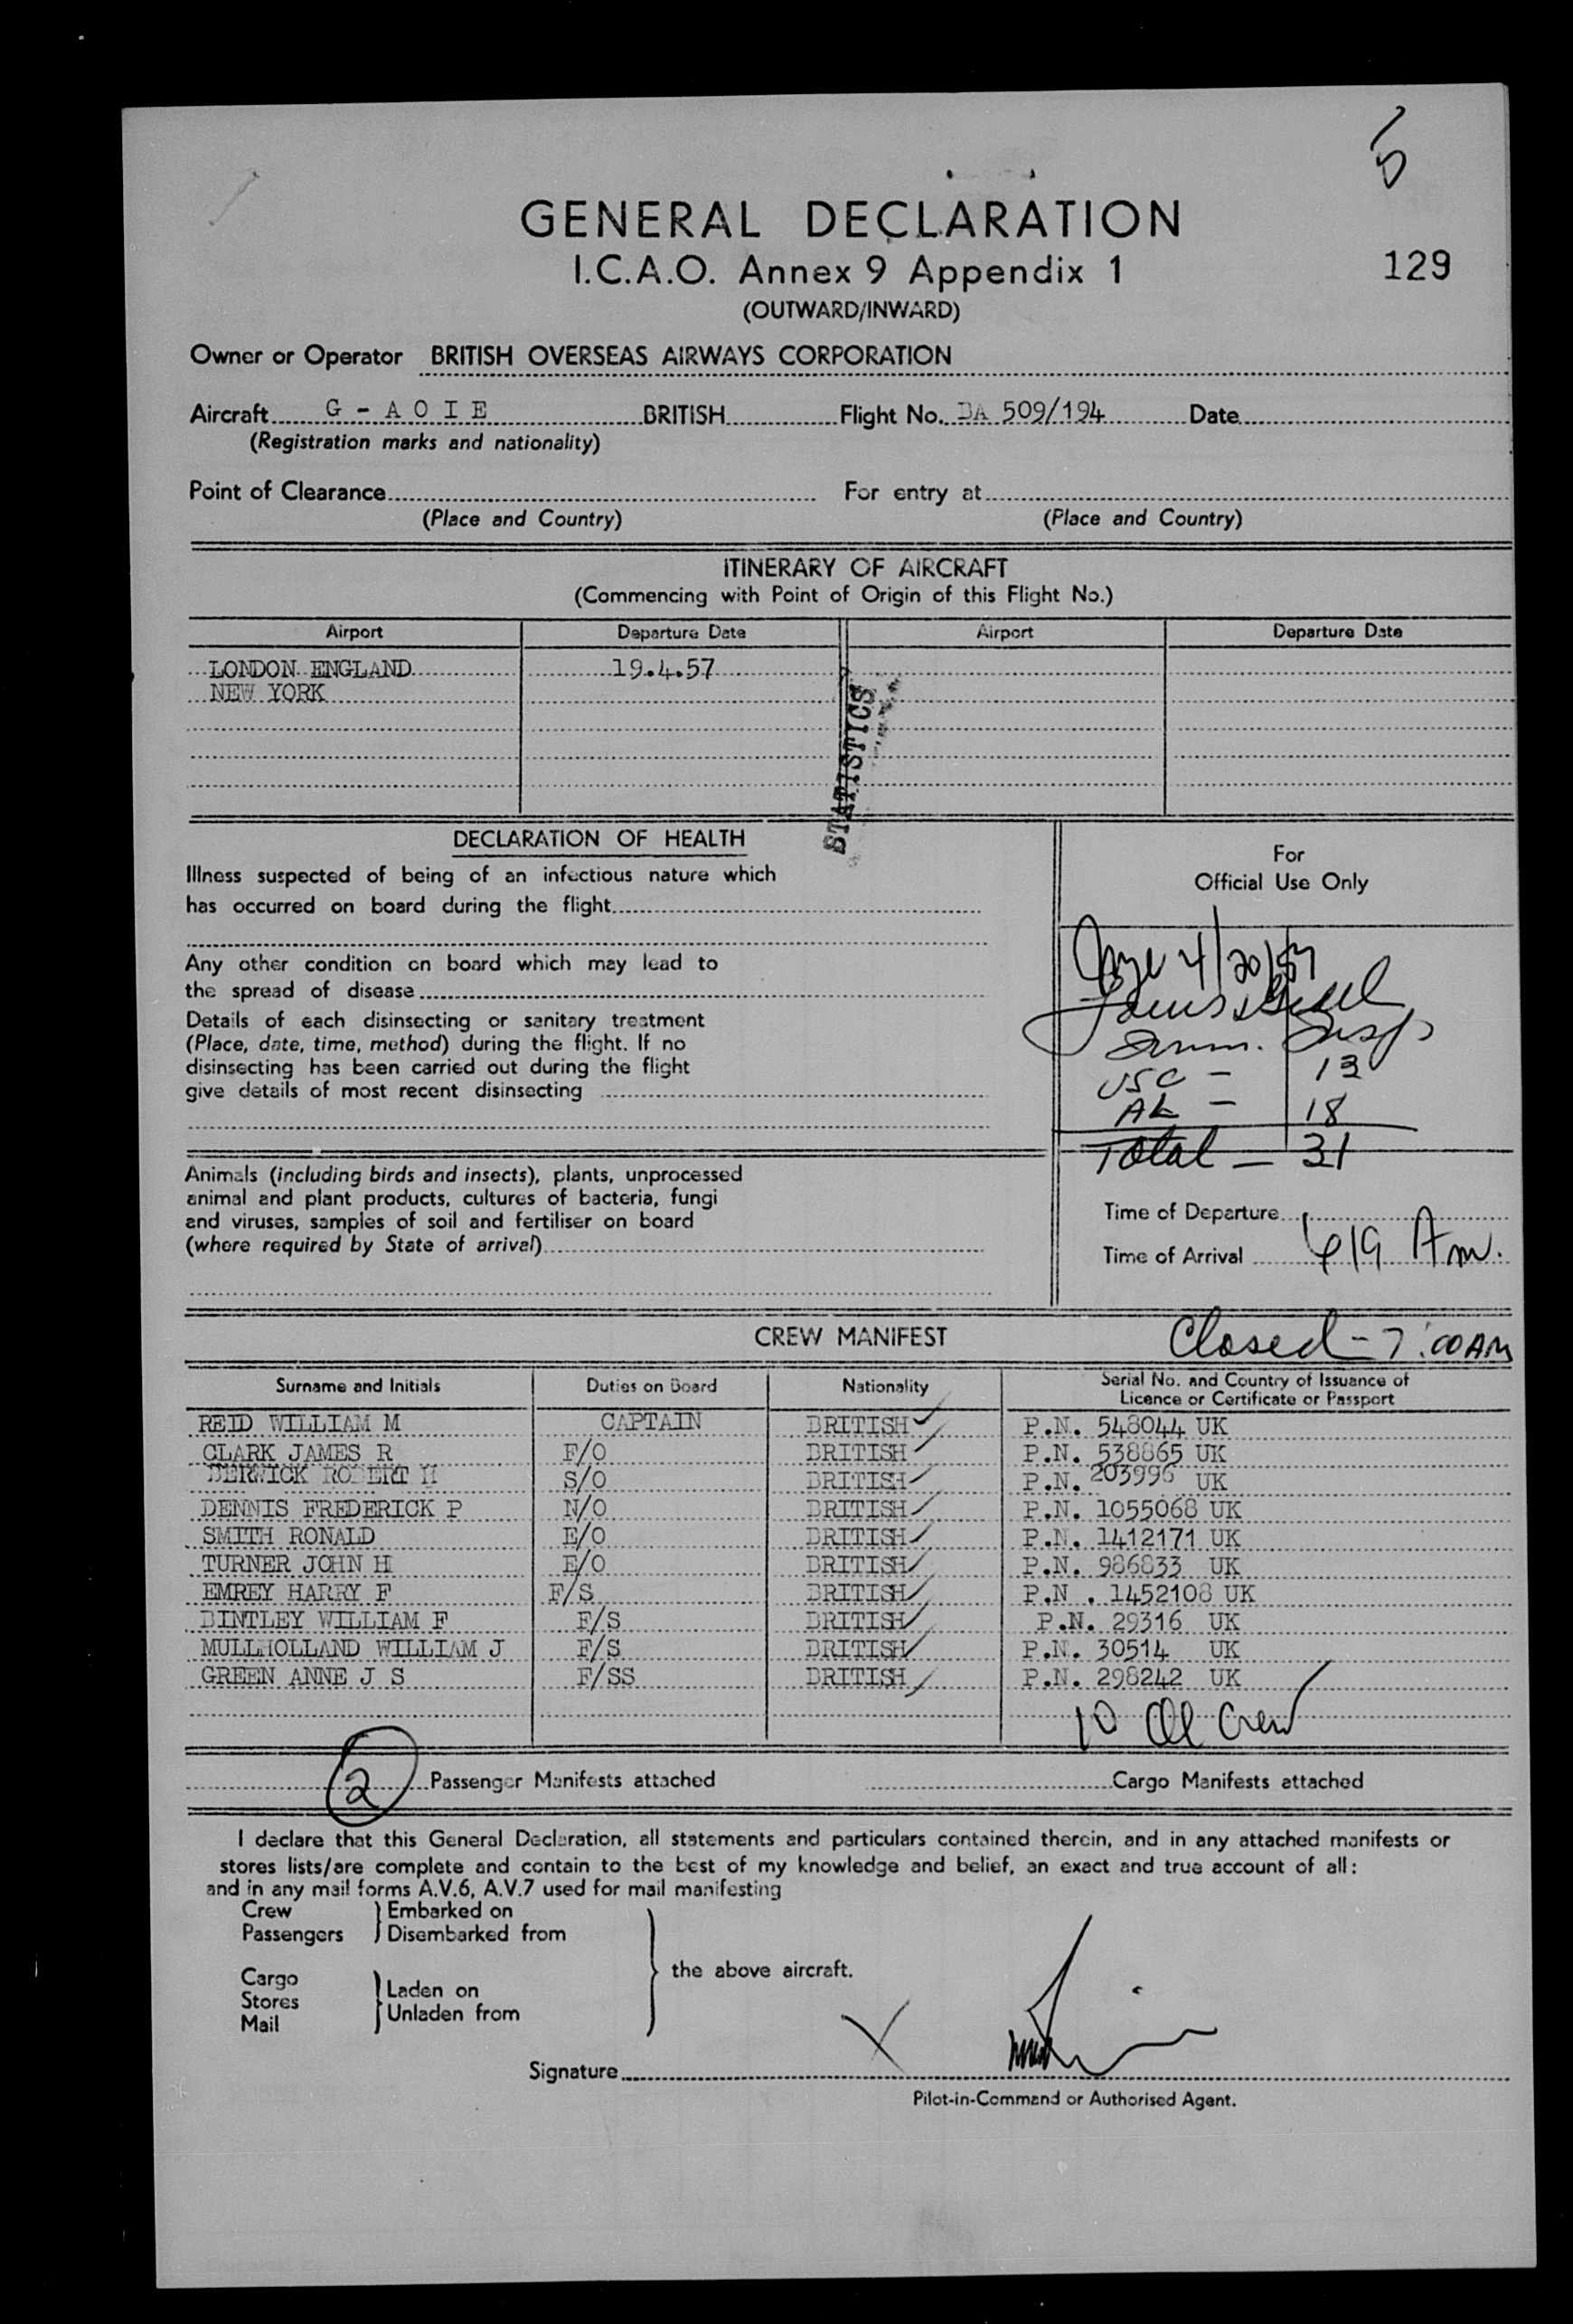 5
GENERAL DECLARATION
I.C.A.O. Annex 9 Appendix 1
129
(OUTWARD/INWARD)
Owner or Operator BRITISH OVERSEAS AIRWAYS CORPORATION
Aircraft G - A O I E BRITISH Flight No. BA 509/194 Date
(Registration marks and nationality)
Point of Clearance For entry at
(Place and Country) (Place and Country)
ITINERARY OF AIRCRAFT
(Commencing with Point of Origin of this Flight No.)
Airport Departure Date Airport Departure Date
LONDON ENGLAND 19.4.57
NEW YORK
STATISTICS
DECLARATION OF HEALTH
Illness suspected of being of an infectious nature which
has occurred on board during the flight
Any other condition on board which may lead to
the spread of disease
Details of each disinsecting or sanitary treatment
(Place, date, time, method) during the flight. If no
disinsecting has been carried out during the flight
give details of most recent disinsecting
Animals (including birds and insects), plants, unprocessed
animal and plant products, cultures of bacteria, fungi
and viruses, samples of soil and fertiliser on board
(where required by State of arrival)
For
Official Use Only
4/20/57
Imm. Insp
USC - 13
AL - 18
Total - 31
Time of Departure
Time of Arrival 619 Am.
CREW MANIFEST
Closed - 7:00AM
Surname and Initials Duties on Board Nationality Serial No. and Country of Issuance of
Licence or Certificate or Passport
REID WILLIAM M CAPTAIN BRITISH P.N. 548044 UK
CLARK JAMES R F/O BRITISH P.N. 538865 UK
BERWICK ROBERT H S/O BRITISH P.N. 203996 UK
DENNIS FREDERICK P N/O BRITISH P.N. 1055068 UK
SMITH RONALD E/O BRITISH P.N. 1412171 UK
TURNER JOHN H E/O BRITISH P.N. 986833 UK
EMREY HARRY F F/S BRITISH P.N . 1452108 UK
BINTLEY WILLIAM F F/S BRITISH P.N. 29316 UK
MULLHOLLAND WILLIAM J F/S BRITISH P.N. 30514 UK
GREEN ANNE J S F/SS BRITISH P.N. 298242 UK
10 Crew
2 Passenger Manifests attached Cargo Manifests attached
I declare that this General Declaration, all statements and particulars contained therein, and in any attached manifests or
stores lists/are complete and contain to the best of my knowledge and belief, an exact and true account of all:
and in any mail forms A.V.6, A.V.7 used for mail manifesting
Crew Embarked on
Passengers Disembarked from
the above aircraft.
Cargo
Stores Laden on
Mail Unladen from
X
Signature
Pilot-in-Command or Authorised Agent.